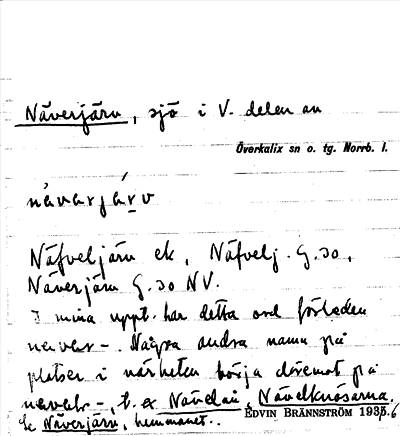 Näverjärv, sjö i V. delen av
Överkalix sn o. tg. Norrb. l.
návarjárv
Näfveljärv ek, Näfvelj. G. 30,
Näverjärv G. 30 NV.
I mina uppt. har detta ord förleden
navar-. Några andra namn på
platser i närheten börja däremot på
navals-, t. ex Nävelån, Nävelknösarna.
Se Näverjärv, hemmanet.
EDVIN BRÄNNSTRÖM 1935.6